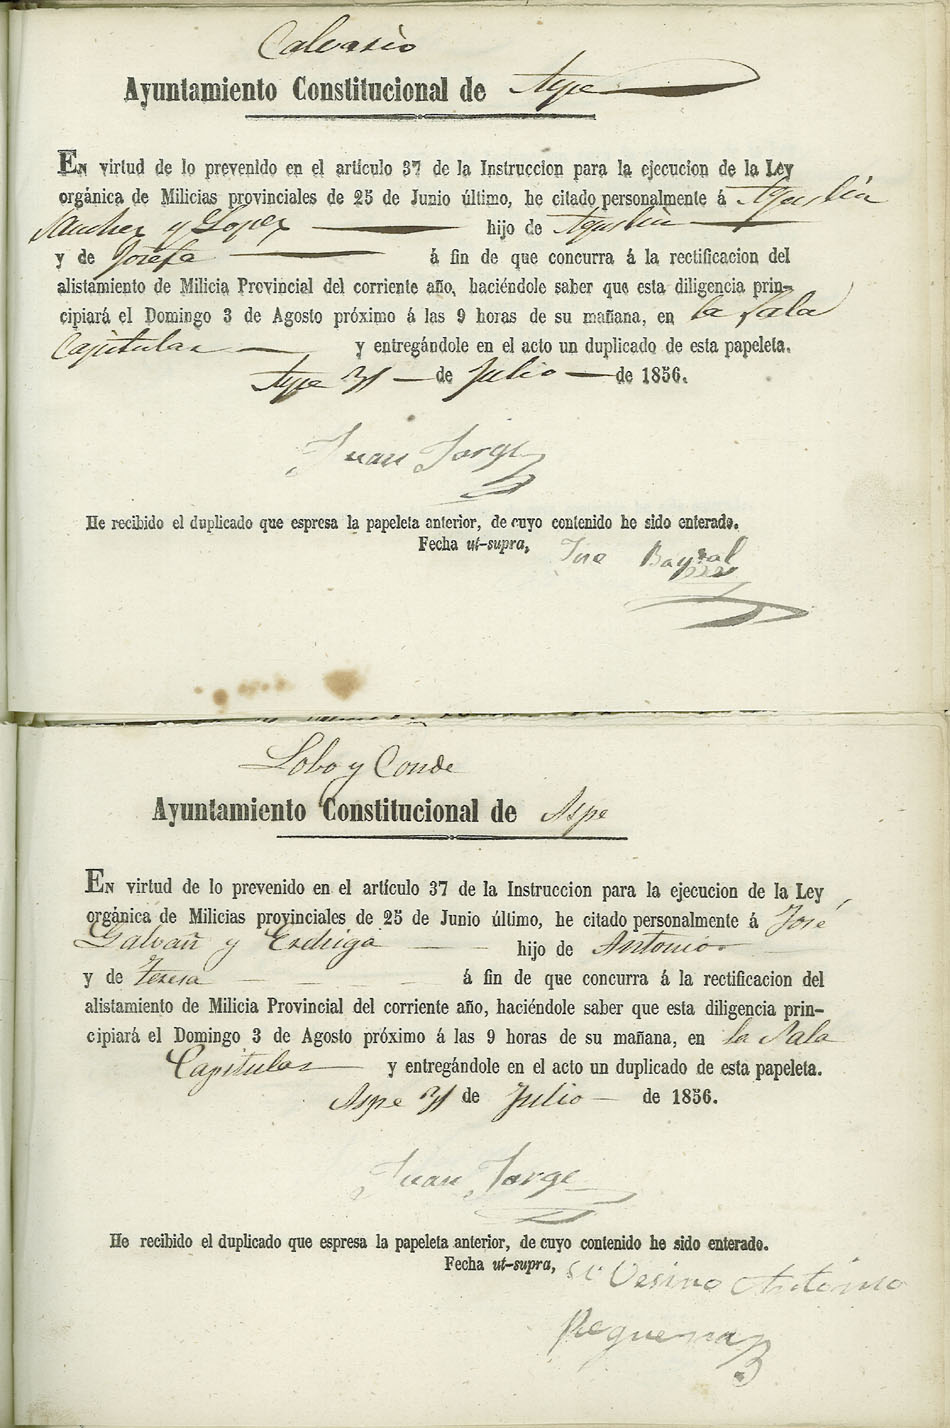 Calvario
Ayuntamiento Constitucional de Aspe
EN virtud de lo prevenido en el artículo 37 de la Instruccion para la ejecucion de la Ley
orgánica de Milicias provinciales de 25 de Junio último, he citado personalmente á Agustin
Sanchez y Lopez hijo de Agustin
y de Josefa á fin de que concurra á la rectificacion del
alistamiento de Milicia Provincial del corriente año, haciéndole saber que esta diligencia prin-
cipiará el Domingo 3 de Agosto próximo á las 9 horas de su mañana, en la Sala
Capitular y entregándole en el acto un duplicado de esta papeleta.
Aspe 31 de Julio de 1856.
Juan Jorge
He recibido el duplicado que espresa la papeleta anterior, de cuyo contenido he sido enterado.
Fecha ut-supra,
Lobo y Conde
Ayuntamiento Constitucional de Aspe
EN virtud de lo prevenido en el artículo 37 de la Instruccion para la ejecucion de la Ley
orgánica de Milicias provinciales de 25 de Junio último, he citado personalmente á José
Galvañ y hijo de Antonio
y de Teresa á fin de que concurra á la rectificacion del
alistamiento de Milicia Provincial del corriente año, haciéndole saber que esta diligencia prin-
cipiará el Domingo 3 de Agosto próximo á las 9 horas de su mañana, en la Sala
Capitular y entregándole en el acto un duplicado de esta papeleta.
Aspe 31 de Julio de 1856.
Juan Jorge
He recibido el duplicado que espresa la papeleta anterior, de cuyo contenido he sido enterado.
Fecha ut-supra, Vesino Antonio
Reguena